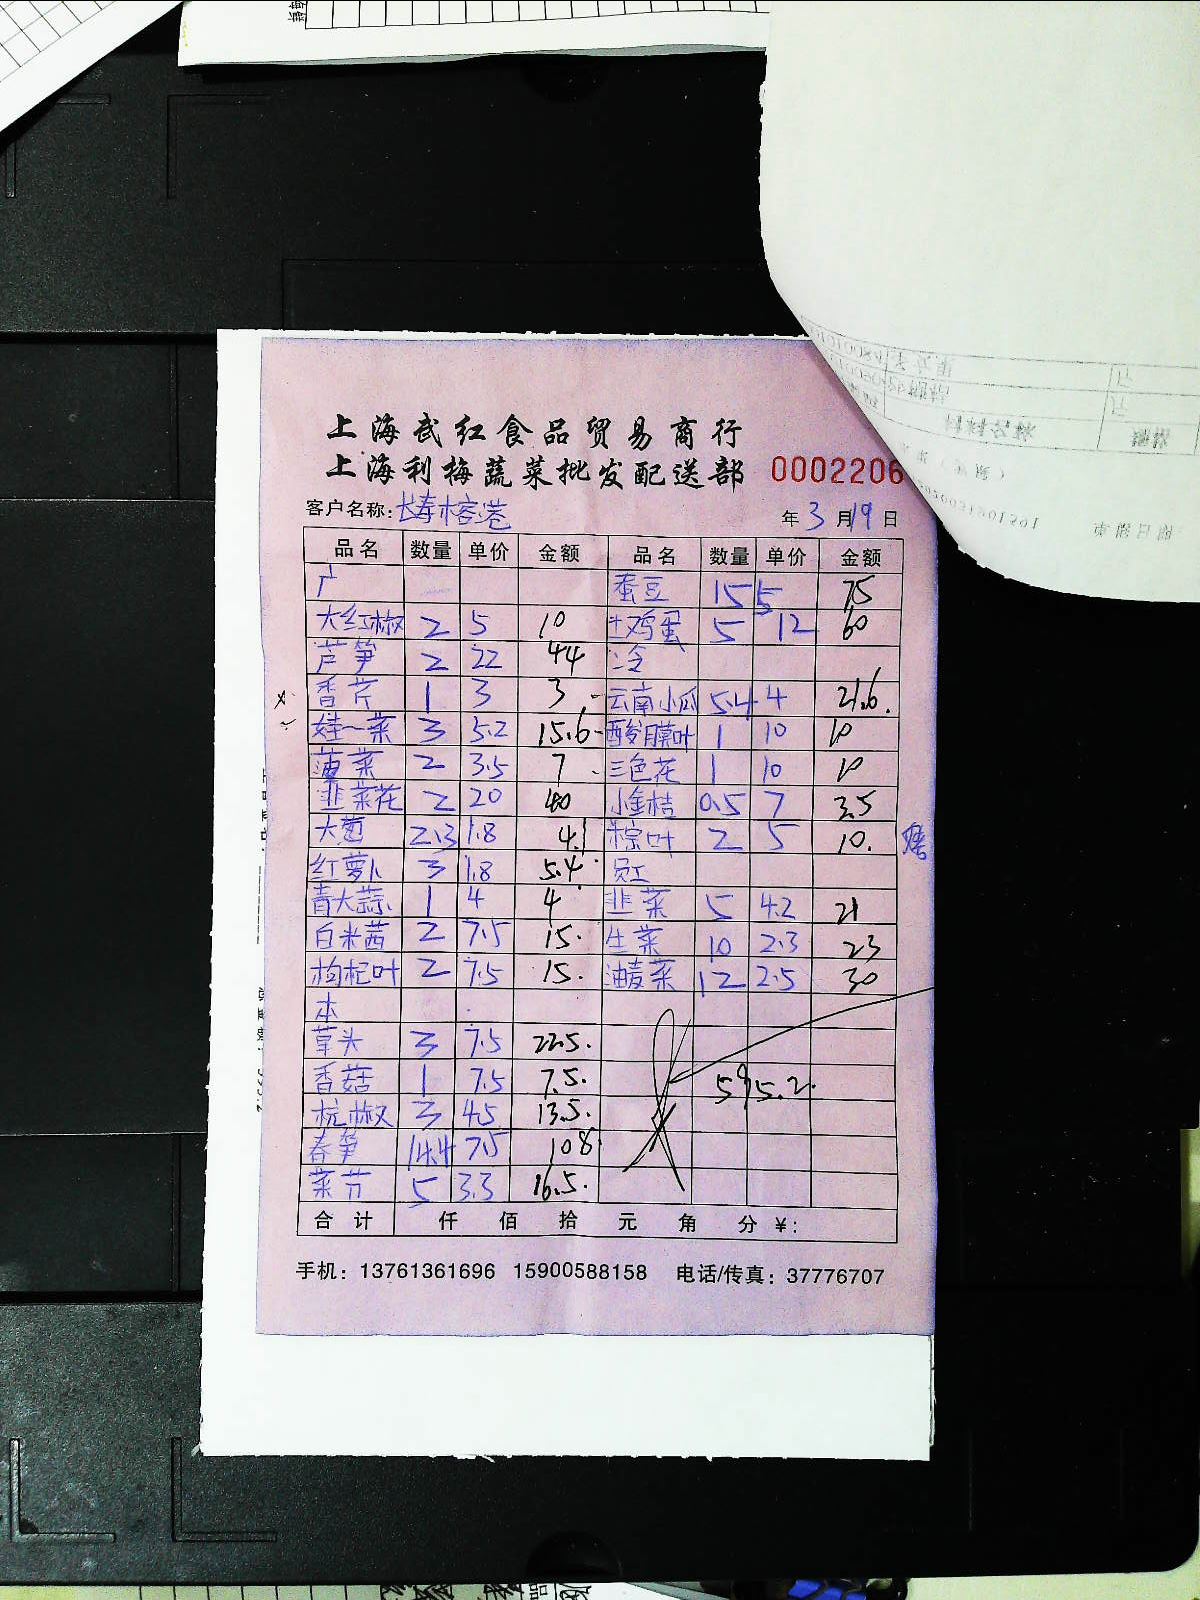 上海武红食品贸易商行
上海利梅蔬菜批发配送部 0002206
客户名称:长寿榕港 年3月19日
品名 数量 单价 金额 品名 数量 单价 金额
广 蚕豆 15 5 75
大红椒 2 5 10 土鸡蛋 5 12 60
芦笋 2 22 44 冷
香芹 1 3 3 云南小瓜 5.4 4 21.6
娃一菜 3 5.2 15.6 酸膜叶 1 10 10
菠菜 2 3.5 7 三色花 1 10 10
韭菜花 2 20 40 小金桔 0.5 7 3.5
大葱 2.3 1.8 4.1 粽叶 2 5 10.
红萝卜 3 1.8 5.4 员工
青大蒜 1 4 4 韭菜 5 4.2 21
白米茜 2 7.5 15. 生菜 10 2.3 23
枸杞叶 2 7.5 15. 油麦菜 12 2.5 30
本
草头 3 7.5 22.5.
香菇 1 7.5 7.5. 595.2.
杭椒 3 4.5 13.5.
春笋 14.4 7.5 108
菜节 5 3.3 16.5.
合计 仟 佰 拾 元 角 分 ¥:
手机: 13761361696 15900588158 电话/传真: 37776707